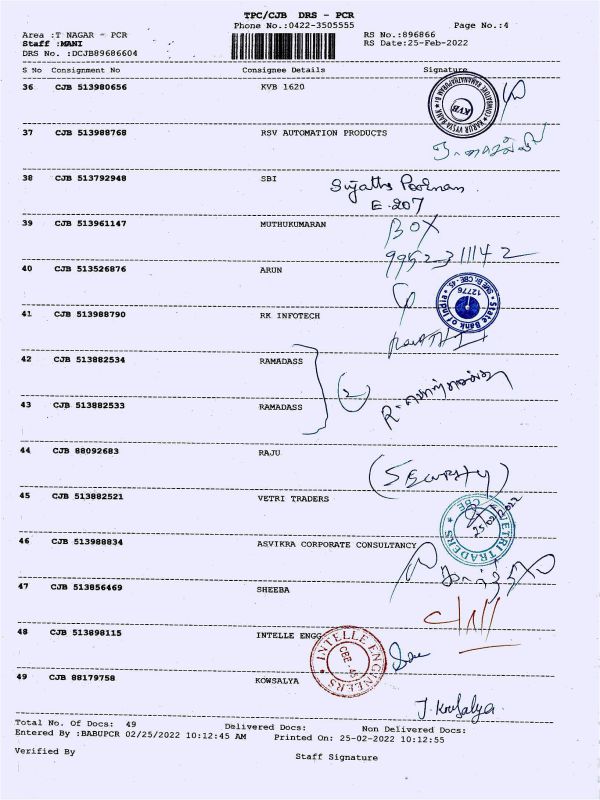 TPC/CJB DRS - PCR
Phone No.:0422-3505555
Page No.:4
Area :T NAGAR - PCR
RS No.:896866
Staff :MANI
RS Date:25-Feb-2022
DRS No. :DCJB89686604
S No Consignment No Consignee Details Signature
36 CJB 513980656 KVB 1620
KVB
37 CJB 513988768 RSV AUTOMATION PRODUCTS
38 CJB 513792948 SBI
E-207
39 CJB 513961147 MUTHUKUMARAN
BOX
40 CJB 513526876 ARUN
State Bank of India
12776
41 CJB 513988790 RK INFOTECH
42 CJB 513882534 RAMADASS
2
43 CJB 513882533 RAMADASS
44 CJB 88092683 RAJU
45 CJB 513882521 VETRI TRADERS
VETRI TRADERS
CBE
46 CJB 513988834 ASVIKRA CORPORATE CONSULTANCY
47 CJB 513856469 SHEEBA
48 CJB 513898115 INTELLE ENGG
INTELLE ENGINEERS
CBE-45
49 CJB 88179758 KOWSALYA
J. Kowsalya
Total No. Of Docs: 49 Delivered Docs: Non Delivered Docs:
Entered By :BABUPCR 02/25/2022 10:12:45 AM Printed On: 25-02-2022 10:12:55
Verified By
Staff Signature